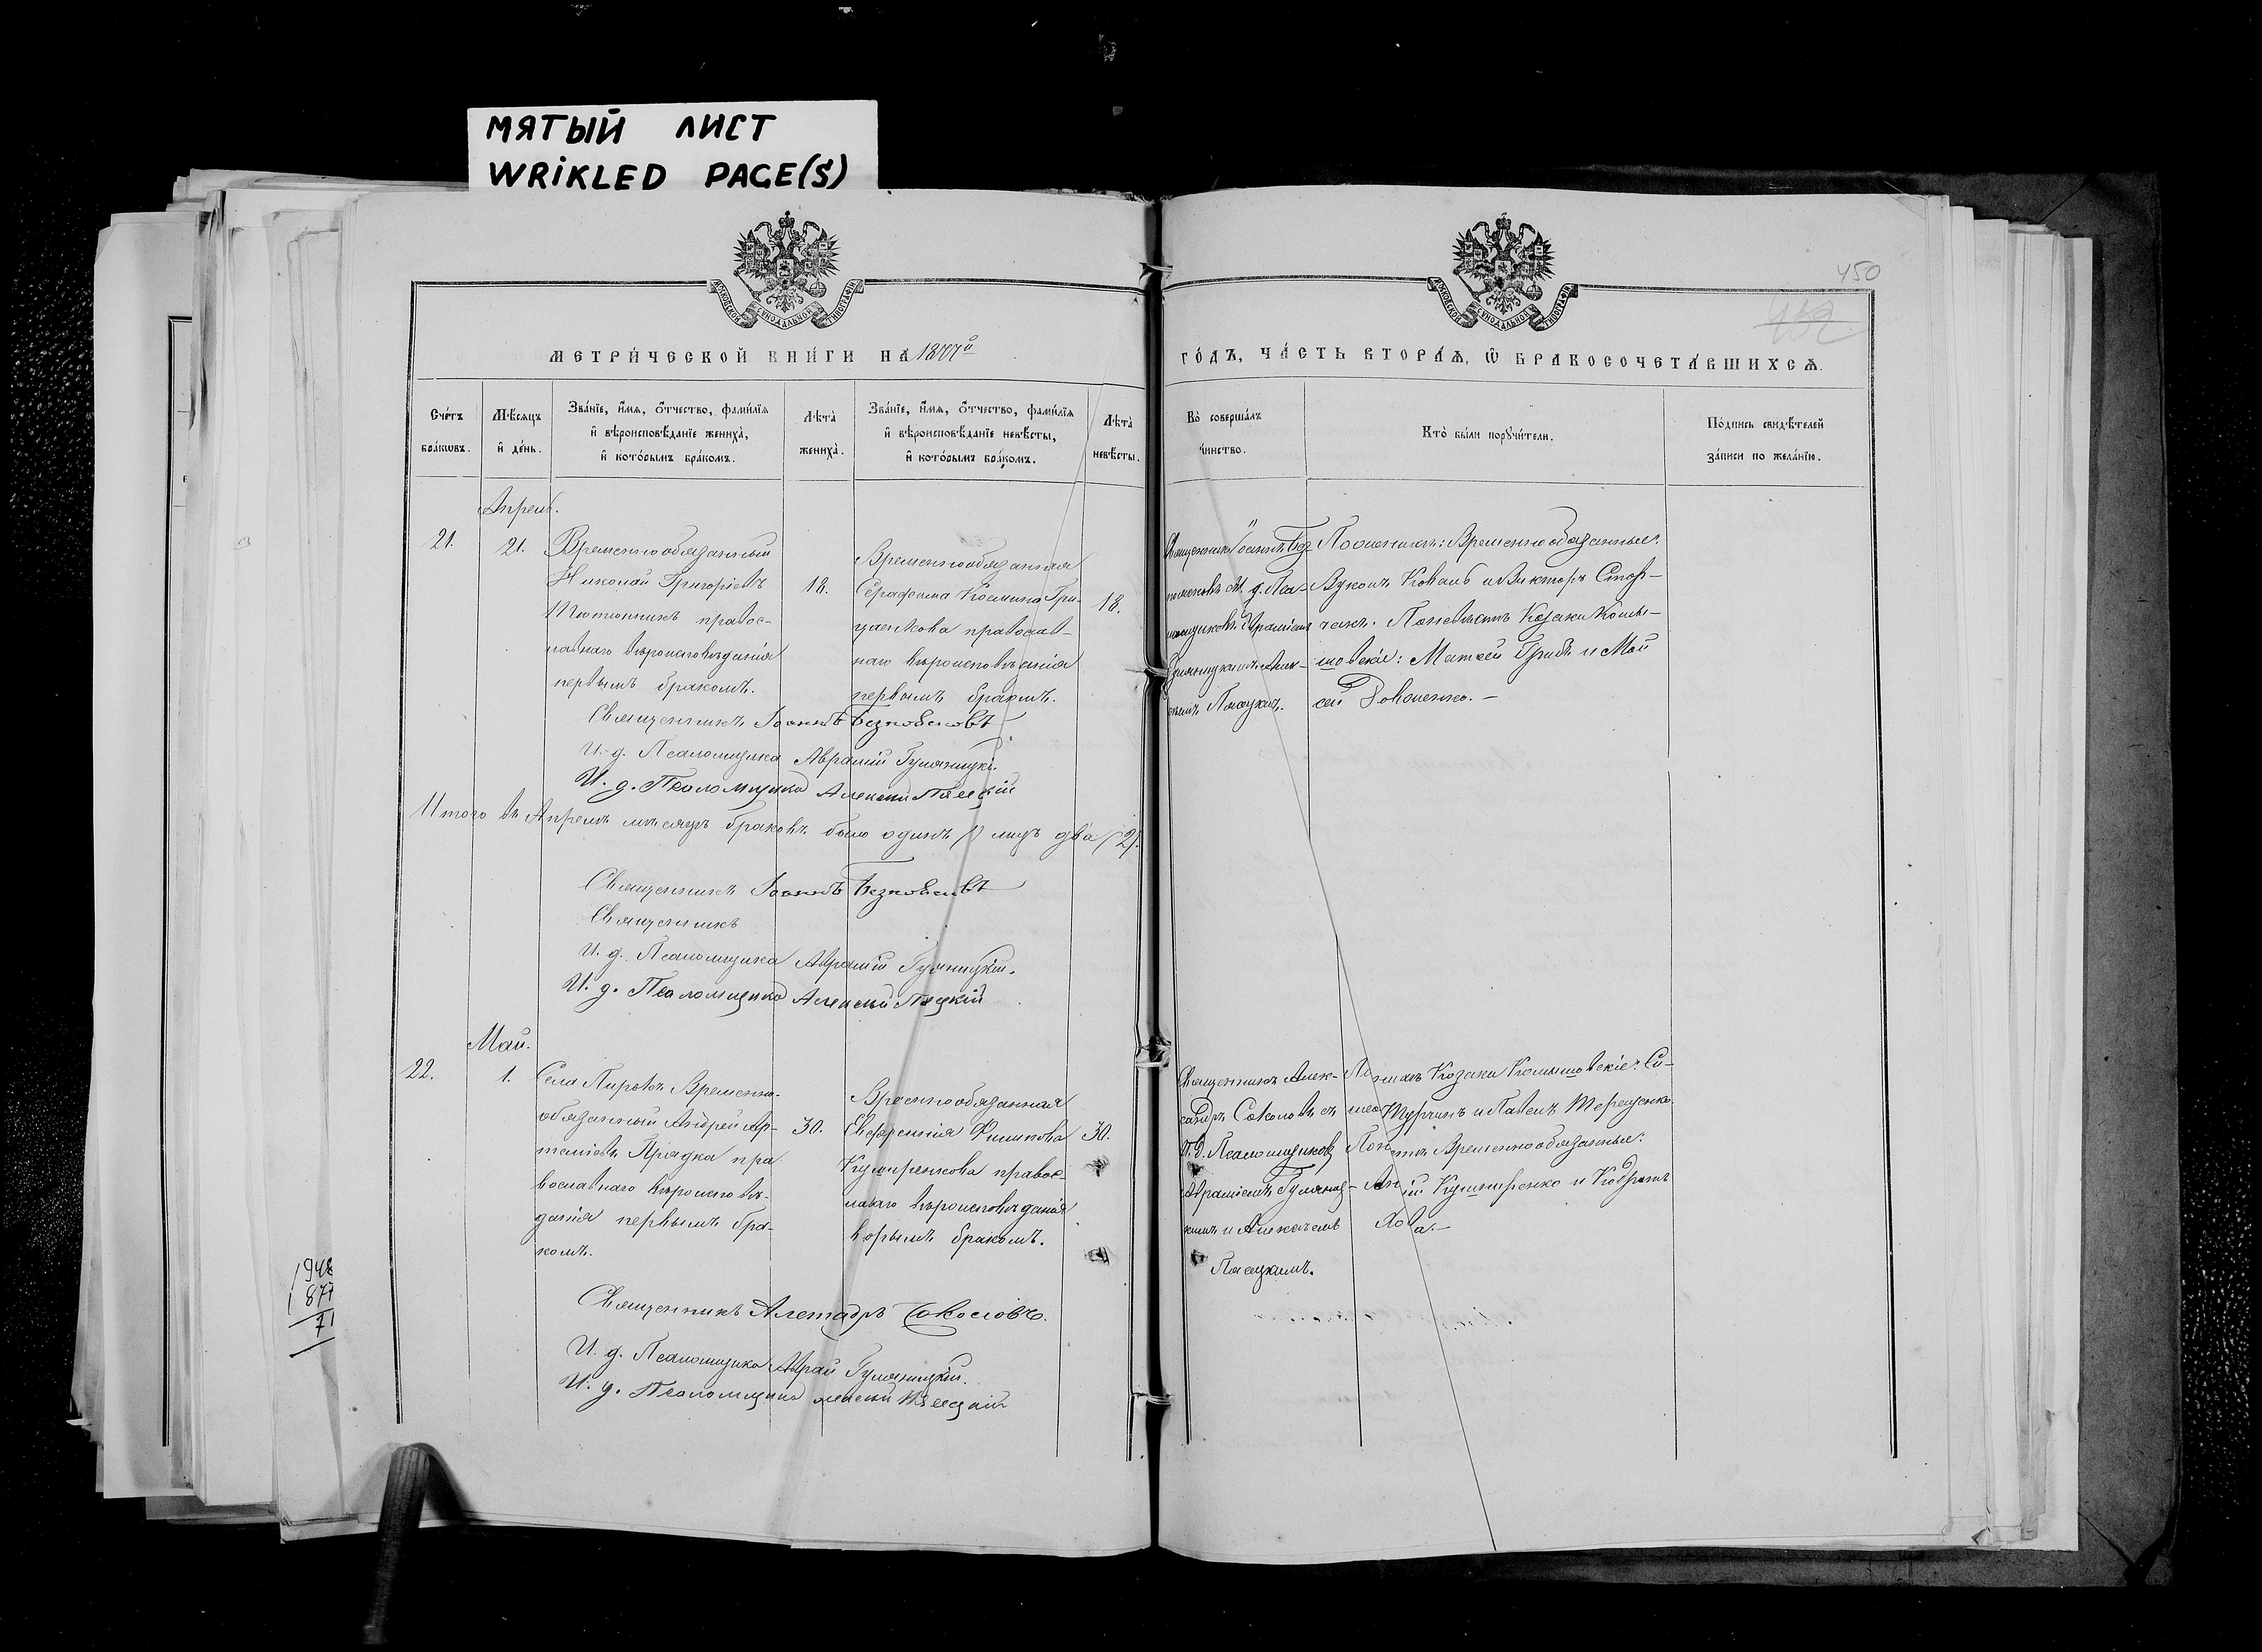 МЯТЫЙ ЛИСТ
WRiKLED PAGE(S)
450
452
МЕТРИ́ЧЕСКОЙ КНИ́ГИ НА 1877й
ГО́ДЪ, ЧА́СТЬ ВТОРА́Ѧ, Ѽ БРАКОСОЧЕТА́ВШИХСѦ.
Сче́тъ бра́кѡвъ.
Мѣ́сѧцъ и҆ де́нь.
Зва́нїе, и҆́мѧ, ѻ҆́тчество, фами́лїѧ и҆ вѣроисповѣ́данїе жениха̀, и҆ кото́рымъ бра́комъ.
Лѣта̀ жениха̀.
Зва́нїе, и҆́мѧ, ѻ҆́тчество, фами́лїѧ и҆ вѣроисповѣ́данїе невѣ́сты, и҆ кото́рымъ бра́комъ.
Лѣта̀ невѣ́сты.
Кто̀ соверша́лъ та́инство.
Кто̀ бы́ли порꙋчи́тели.
По́дпись свидѣ́телей за́писи по жела́нїю.
Апрель.
21.
21.
Временнообязанный
Николай Григоріевъ
Тютюнникъ правос-
лавнаго вѣроисповѣданія
первымъ бракомъ.
18.
Временнообязанная
Серафима Космина Гри-
ценкова православ-
наго вѣроисповѣданія
первымъ бракомъ.
18.
Священникъ Іоаннъ Без
Авраміемъ
По женихѣ: Временнообязанные:
Вуколъ Коваль и Викторъ
По невѣстѣ Козаки Комы-
шовскіе: Матвей Грибъ и Мой
сей Доволенко. –
Священникъ Іоаннъ Безповсловъ
И. д. Псаломщика Аврамій Гуляницкій.
И. д. Псаломщика Алексей Пясецкій
Итого въ Апрелѣ мѣсяцѣ браковъ было одинъ (1) лицъ два (2).
Священникъ Іоаннъ Безповсловъ
Священникъ
И. д. Псаломщика Аврамій Гуляницкій.
И. д. Псаломщика Алексей Пясецкій
Май.
22.
1.
Села Пировъ Временно-
обязанный Андрей Ар-
теміевъ Прядка пра
вославнаго вѣроисповѣ-
данія первымъ бра-
комъ.
30.
Временнообязанная
Евфросинія Филипова
Кушниренкова правос-
лавнаго вѣроисповѣданія
вторымъ бракомъ.
30.
Священникъ Алек-
сандръ Соколовъ съ
И. д. Псаломщиковъ
Авраміемъ Гуляниц-
кимъ и Алексеемъ
Пясецкимъ.
По женихѣ Козаки Комышовскіе: Си-
Турчинъ и Павелъ Терещенко.
По невѣстѣ Временнообязанные:
Кушниренко и Кодратъ
Священникъ Александръ Соколовъ.
И. д. Псаломщика Аврамій Гуляницкій.
И. д. Псаломщика Алексей Пясецкій
1948
1877
71